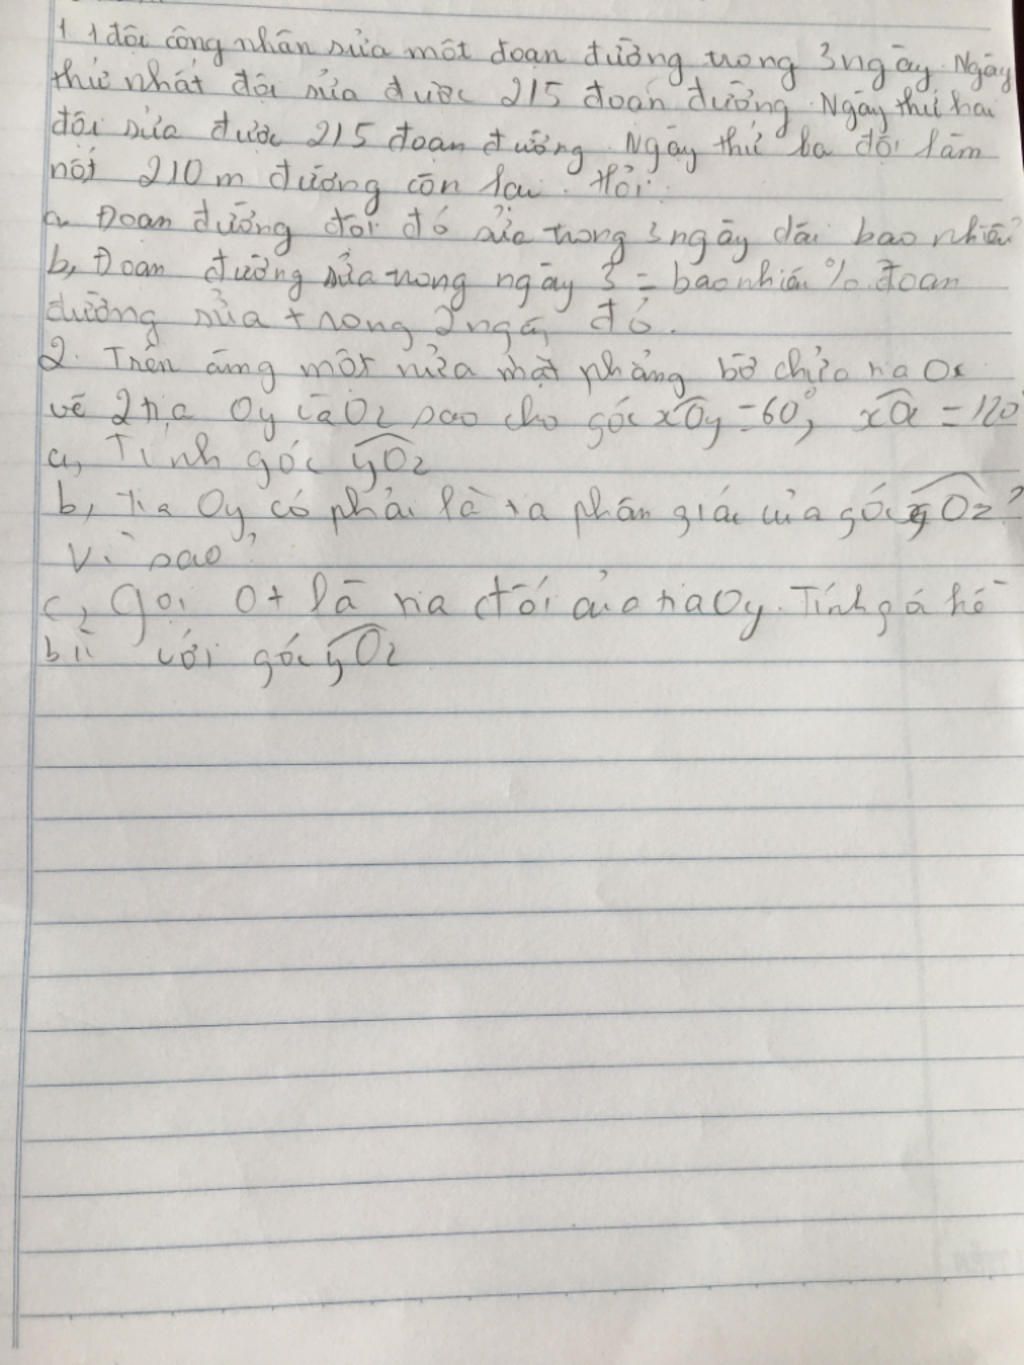 1 1 đội công nhân sửa một đoạn đường trong 3 ngày. Ngày
thứ nhất đội sửa được 215 đoạn đường. Ngày thứ hai
đội sửa được 215 đoạn đường. Ngày thứ ba đội làm
nốt 210 m đường còn lại. Hỏi:
a, Đoạn đường đội đó sửa trong 3 ngày dài bao nhiêu?
b, Đoạn đường sửa trong ngày 3 = bao nhiêu % đoạn
đường sửa trong 2 ngày đó.
2. Trên cùng một nửa mặt phẳng bờ chứa tia Ox
vẽ 2 tia Oy và Oz sao cho góc xOy = 60°, xOz = 120°
a, Tính góc yOz
b, Tia Oy có phải là tia phân giác của góc xOz?
Vì sao?
c, Gọi Ot là tia đối của tia Oy. Tính góc kề
bù với góc yOz